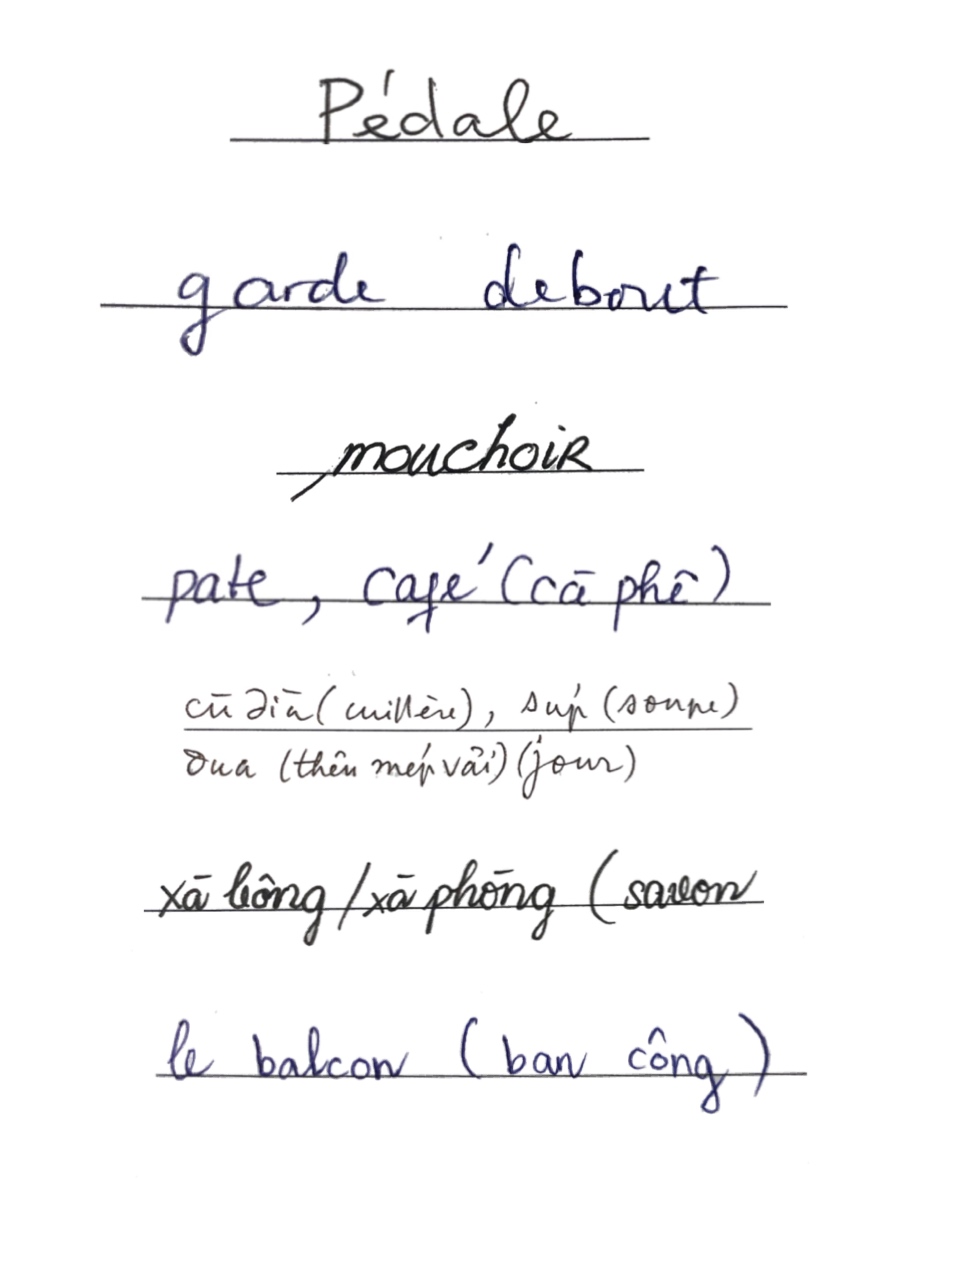 Pédale
garde debout
mouchoir
pate, café (cà phê)
cù dìa (cuillère), súp (soupe)
dua (thêu mép vải) (jour)
xà bông / xà phòng (savon
le balcon (ban công)